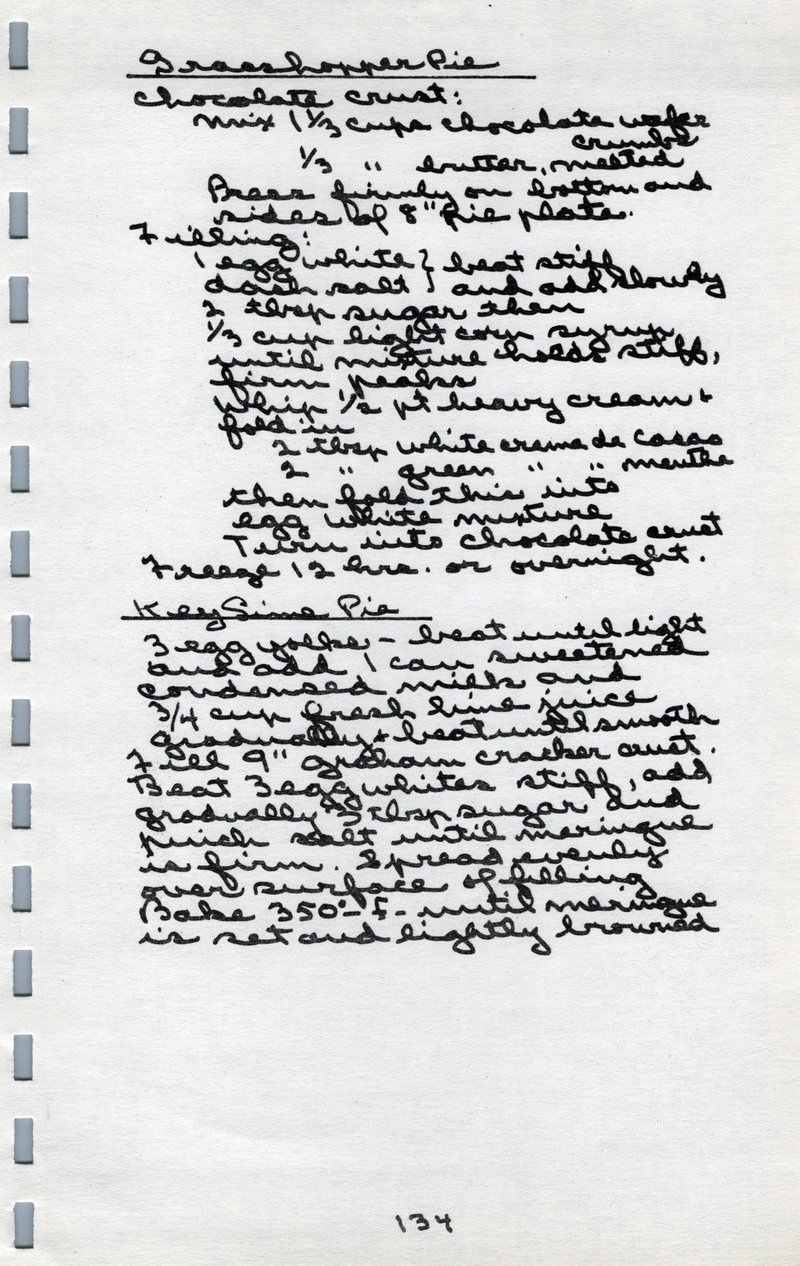 Grasshopper Pie
Chocolate crust:
Mix 1 1/3 cups chocolate wafer
crumbs
1/3 " butter, melted
Press firmly on bottom and
sides of 8" pie plate.
Filling:
1 egg white } beat stiff
dash salt } and add slowly
2 tbsp sugar then
1/3 cup light corn syrup
until mixture holds stiff,
firm peaks
Whip 1/2 pt heavy cream +
fold in
2 tbsp white creme de Cacao
2 " green " " menthe
then fold this into
egg white mixture
Turn into chocolate crust
Freeze 12 hrs. or overnight.
Key Lime Pie
3 egg yolks - beat until light
and add 1 can sweetened
condensed milk and
3/4 cup fresh lime juice
gradually + beat until smooth
Fill 9" graham cracker crust.
Beat 3 egg whites stiff, add
gradually 3 tbsp sugar and
pinch salt until meringue
is firm. Spread evenly
over surface of filling
Bake 350° F - until meringue
is set and lightly browned
134